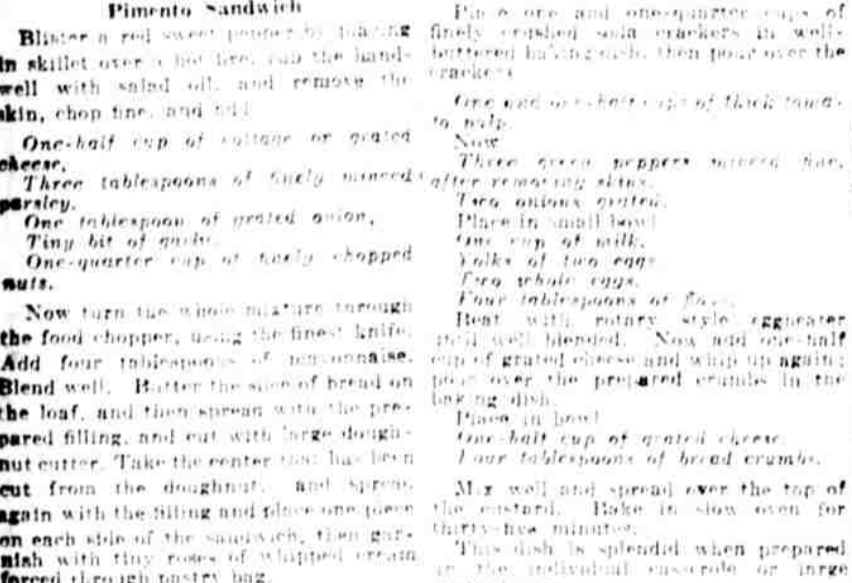 Pimento Sandwich
Blister a red sweet pepper by
in skillet over a hot fire, rub the hand-
well with salad oil, and remove the
skin, chop fine, and add
One-half cup of cottage or grated
cheese,
Three tablespoons of finely minced
parsley,
One tablespoon of grated onion,
Tiny bit of garlic,
One-quarter cup of finely chopped
nuts.
Now turn the whole mixture through
the food chopper, using the finest knife.
Add four tablespoons of mayonnaise.
Blend well. Butter the slice of bread on
the loaf, and then spread with the pre-
pared filling, and cut with large dough-
nut cutter. Take the center that has been
cut from the doughnut, and spread
again with the filling and place one piece
on each side of the sandwich, then gar-
nish with tiny roses of whipped cream
forced through pastry bag.
Place one and one-quarter cups of
finely crushed soda crackers in well-
buttered baking dish, then pour over the
crackers
One and one-half cups of thick toma-
to pulp.
Now
Three green peppers minced fine,
after removing skins.
Two onions grated.
Place in small bowl
One cup of milk,
Yolks of two eggs
Two whole eggs,
Four tablespoons of flour.
Beat with rotary style eggbeater
until well blended. Now add one-half
cup of grated cheese and whip up again;
pour over the prepared crumbs in the
baking dish.
Place in bowl
One-half cup of grated cheese,
Four tablespoons of bread crumbs.
Mix well and spread over the top of
the custard. Bake in slow oven for
thirty-five minutes.
This dish is splendid when prepared
in the individual casserole or large